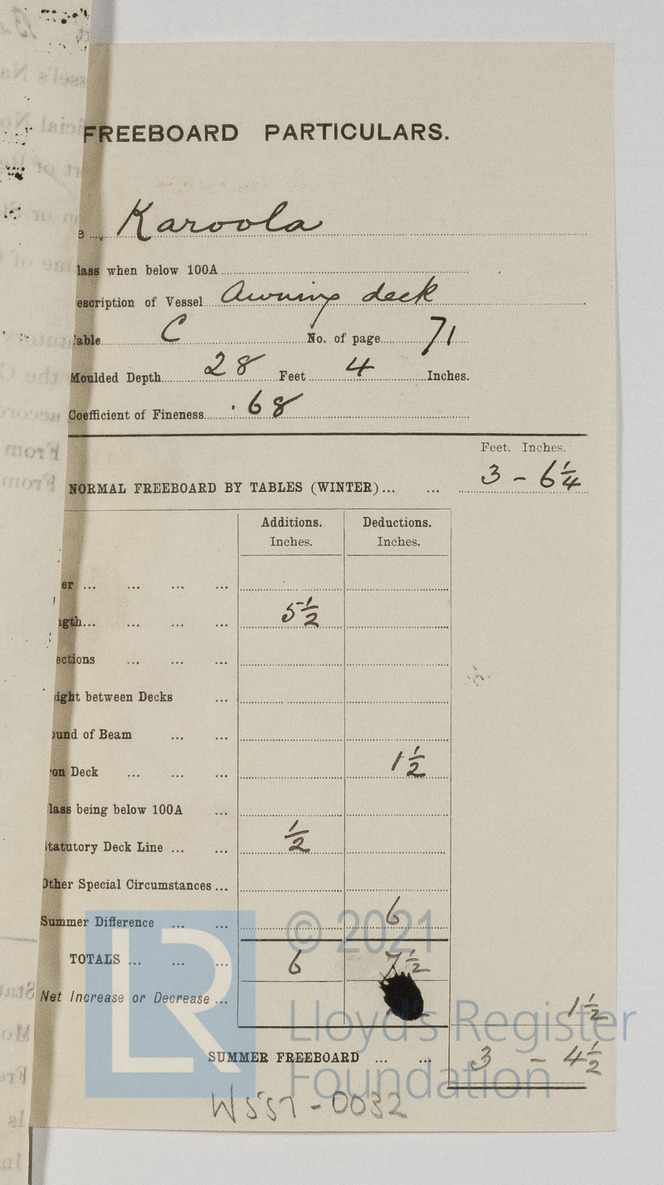 FREEBOARD PARTICULARS.
e Karoola
lass when below 100A
escription of Vessel Awning deck
able C No. of page 71
Moulded Depth 28 Feet 4 Inches.
Coefficient of Fineness .68
Feet. Inches.
NORMAL FREEBOARD BY TABLES (WINTER)... ... 3 - 6¼
Additions. Deductions.
Inches. Inches.
er ... ... ... ...
ngth... ... ... ... 5½
ections ... ... ...
ight between Decks ...
ound of Beam ... ...
on Deck ... ... ... 1½
lass being below 100A ...
tatutory Deck Line ... ... ½
Other Special Circumstances ...
Summer Difference ... ... 6
© 2021
TOTALS ... ... ... 6 7½
Net Increase or Decrease ... 1½
LR
Lloyd's Register
Foundation
SUMMER FREEBOARD ... ... 3 - 4½
W557-0032